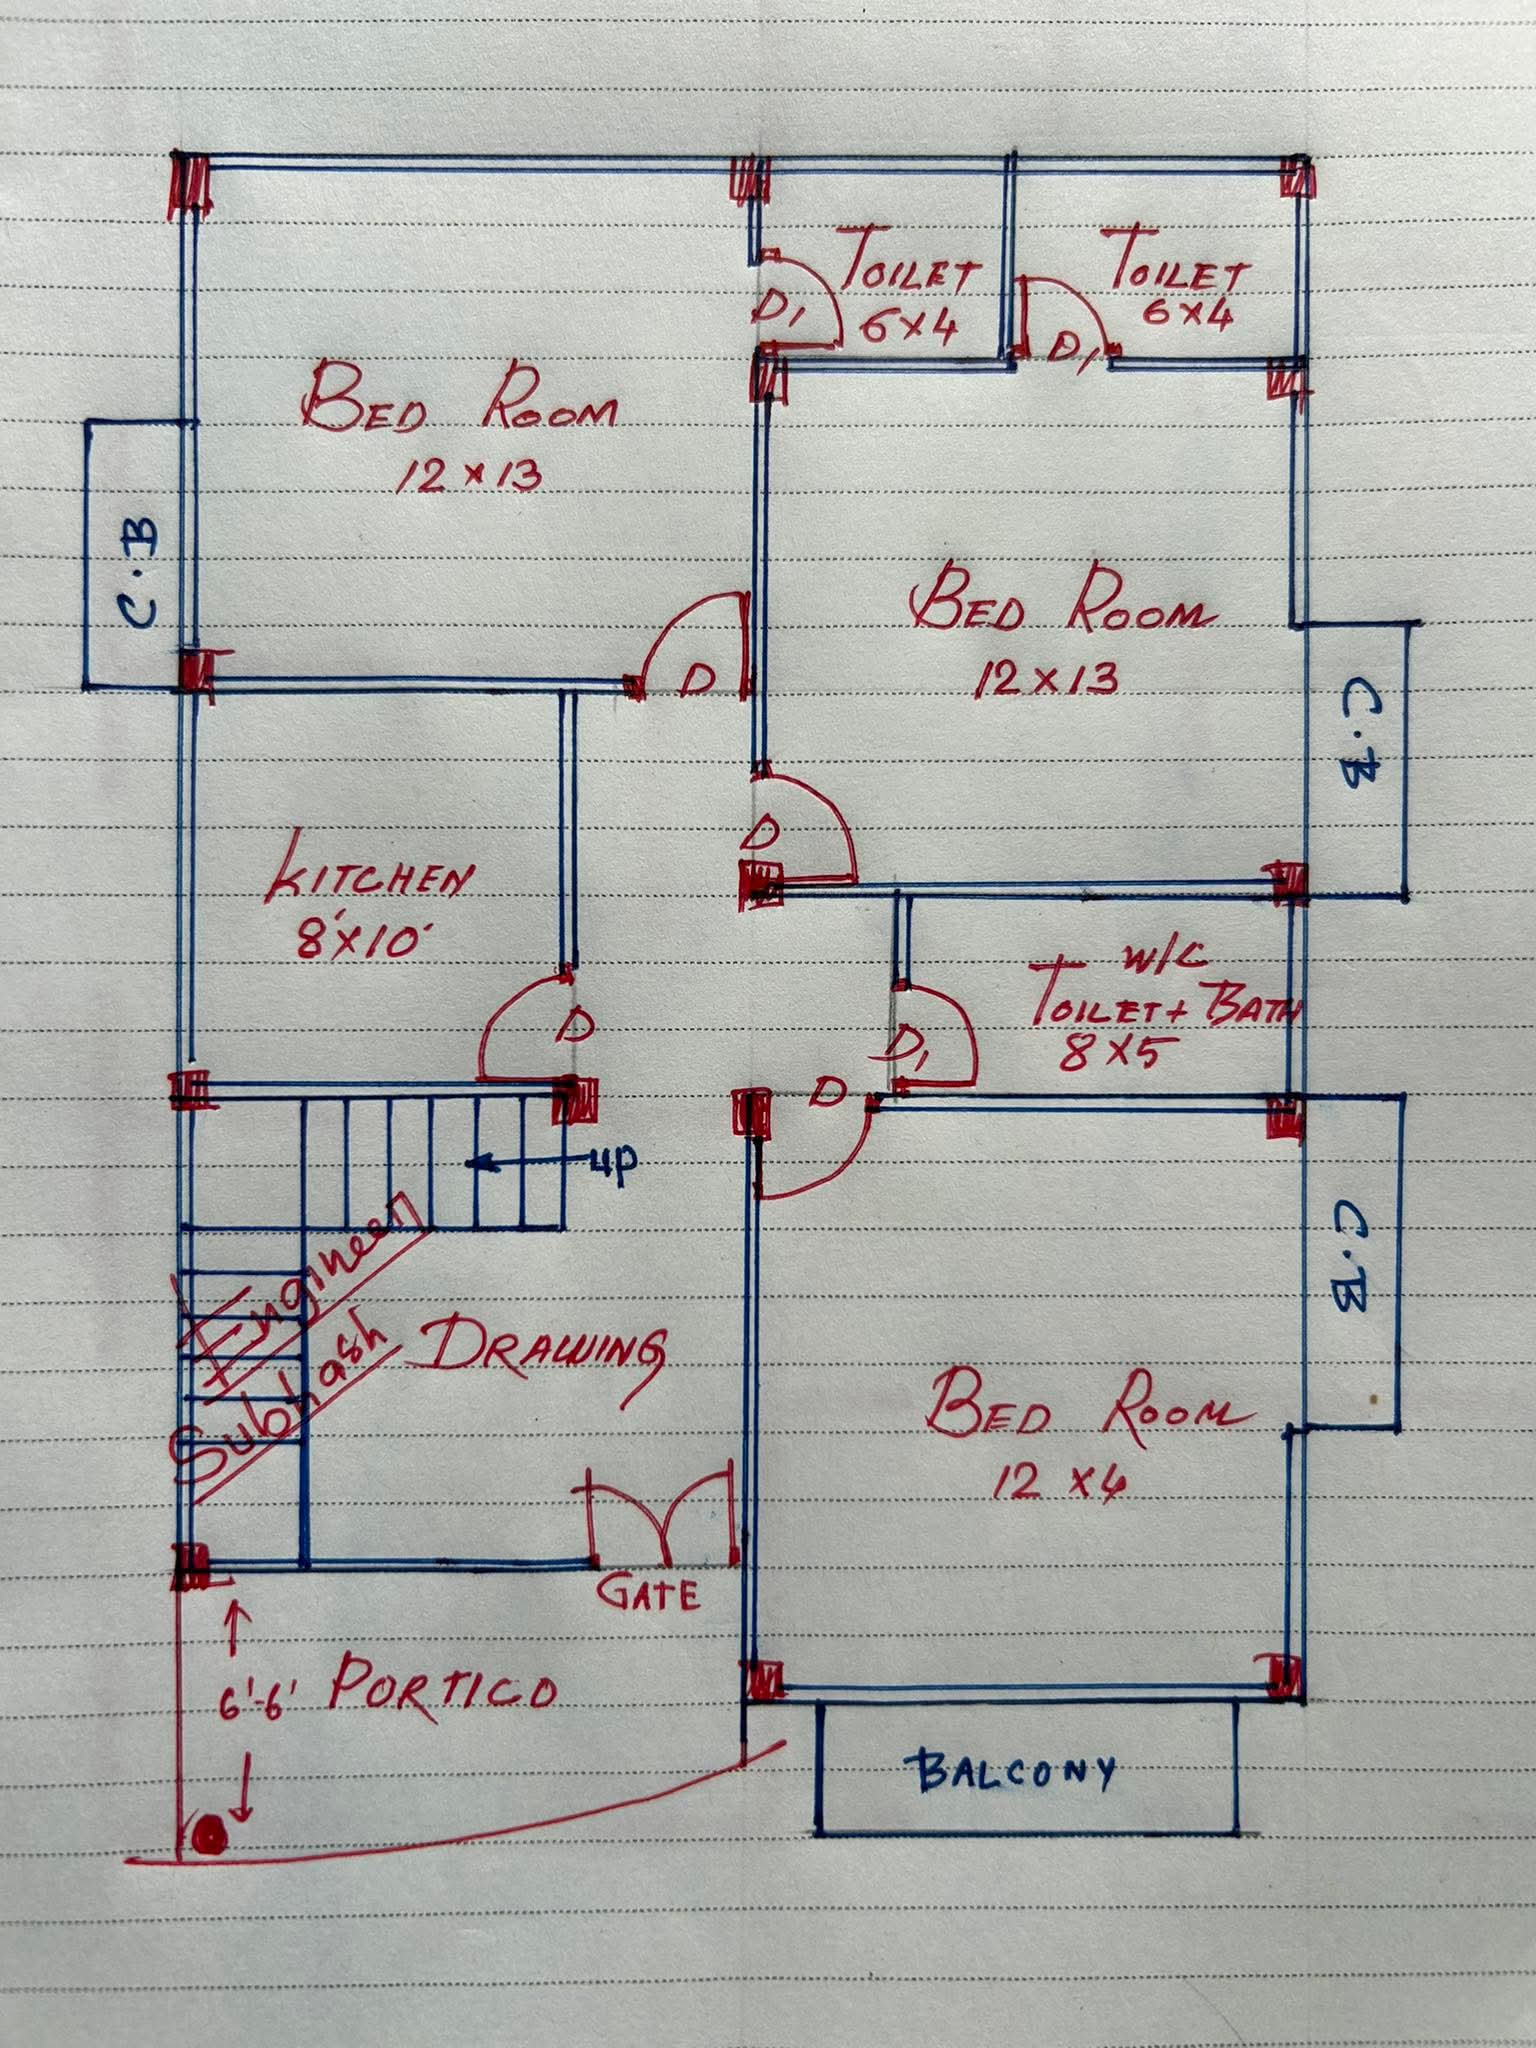 TOILET
6x4
D1
TOILET
6x4
D1
BED ROOM
12 x 13
C.B
D
BED ROOM
12 x 13
C.B
D
KITCHEN
8'x10'
D
W/C
TOILET + BATH
8x5
D1
D
UP
Engineer
Subhash
DRAWING
C.B
BED ROOM
12 x 4
GATE
6'-6' PORTICO
BALCONY